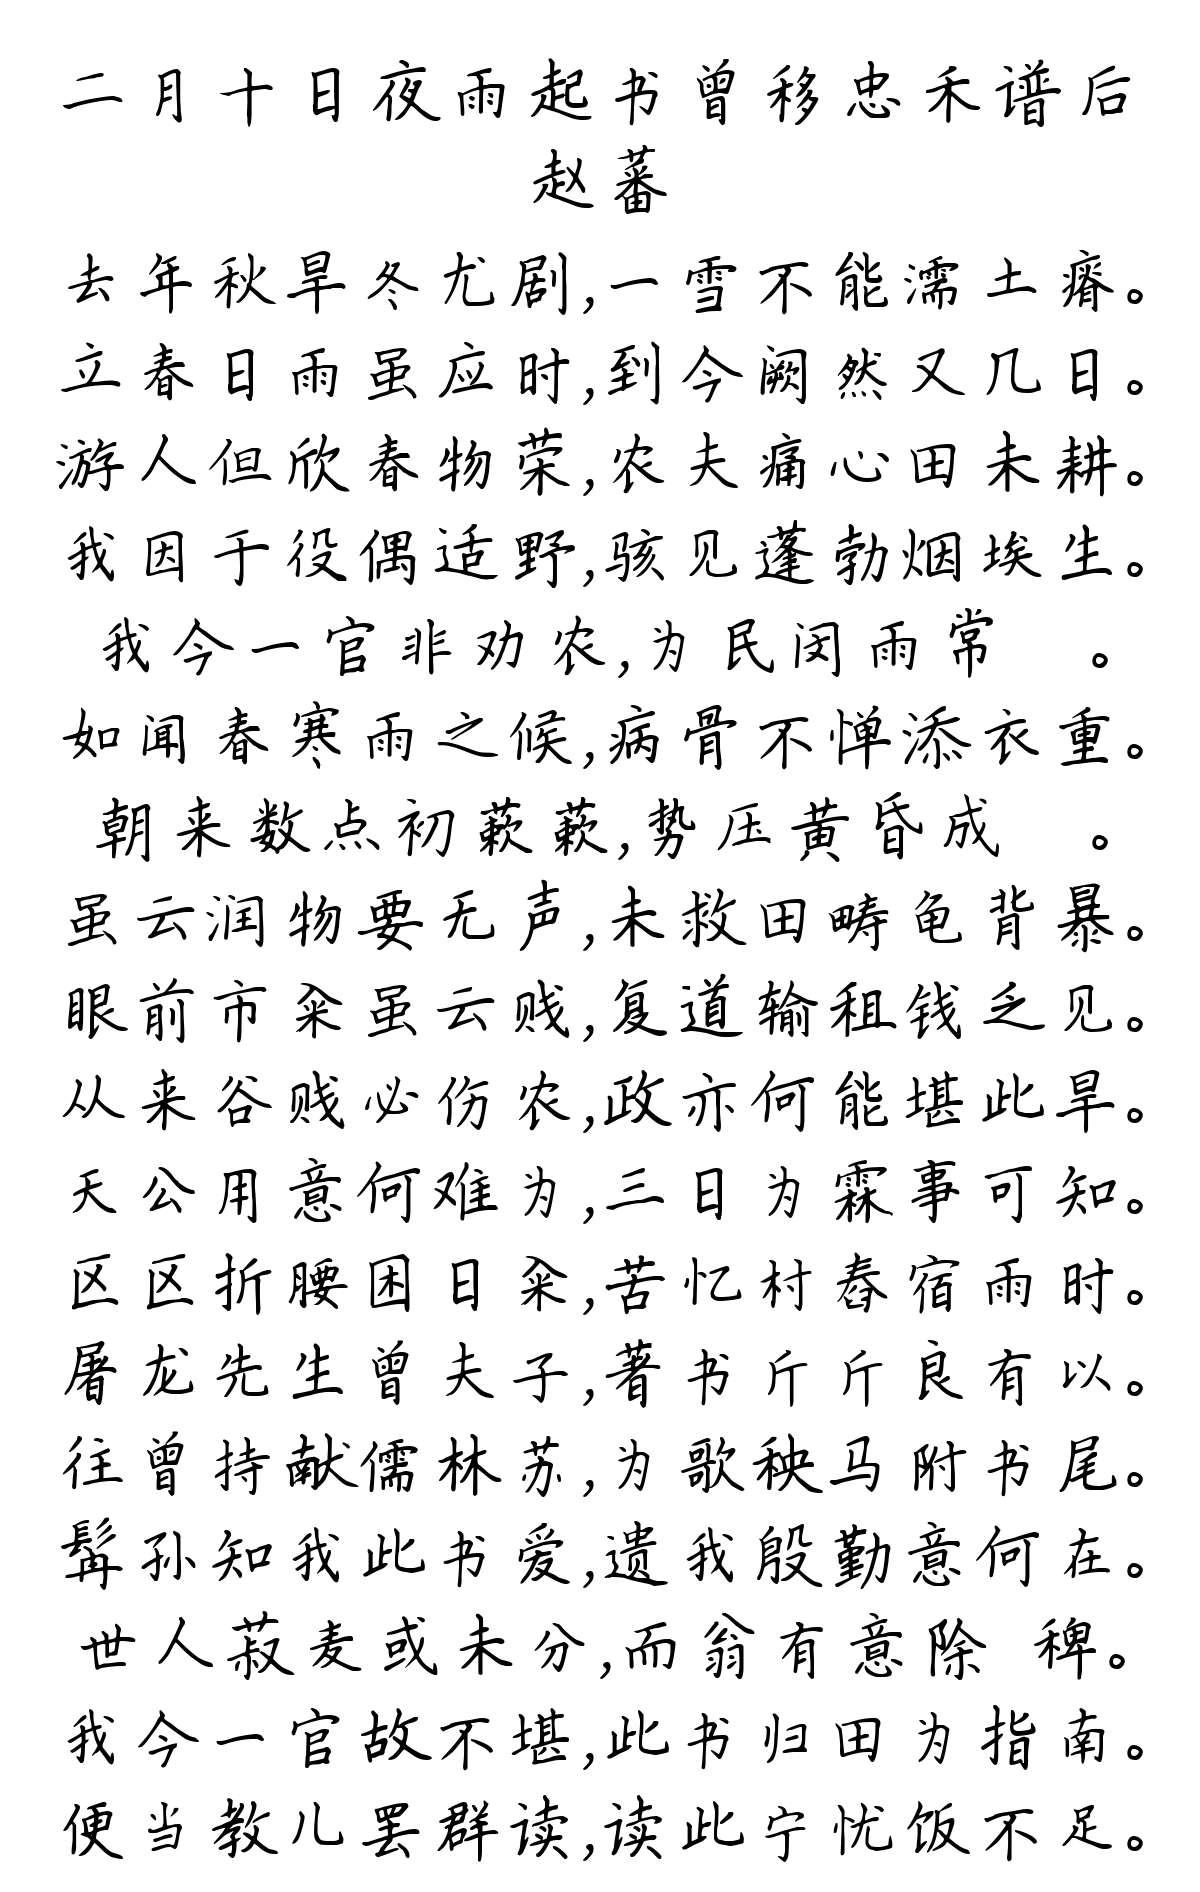 二月十日夜雨起书曾移忠禾谱后
赵蕃
去年秋旱冬尤剧,一雪不能濡土瘠。
立春日雨虽应时,到今阙然又几日。
游人但欣春物荣,农夫痛心田未耕。
我因于役偶适野,骇见蓬勃烟埃生。
我今一官非劝农,为民闵雨常 。
如闻春寒雨之候,病骨不惮添衣重。
朝来数点初蔌蔌,势压黄昏成 。
虽云润物要无声,未救田畴龟背暴。
眼前市籴虽云贱,复道输租钱乏见。
从来谷贱必伤农,政亦何能堪此旱。
天公用意何难为,三日为霖事可知。
区区折腰困日籴,苦忆村舂宿雨时。
屠龙先生曾夫子,著书斤斤良有以。
往曾持献儒林苏,为歌秧马附书尾。
髯孙知我此书爱,遗我殷勤意何在。
世人菽麦或未分,而翁有意除 稗。
我今一官故不堪,此书归田为指南。
便当教儿罢群读,读此宁忧饭不足。